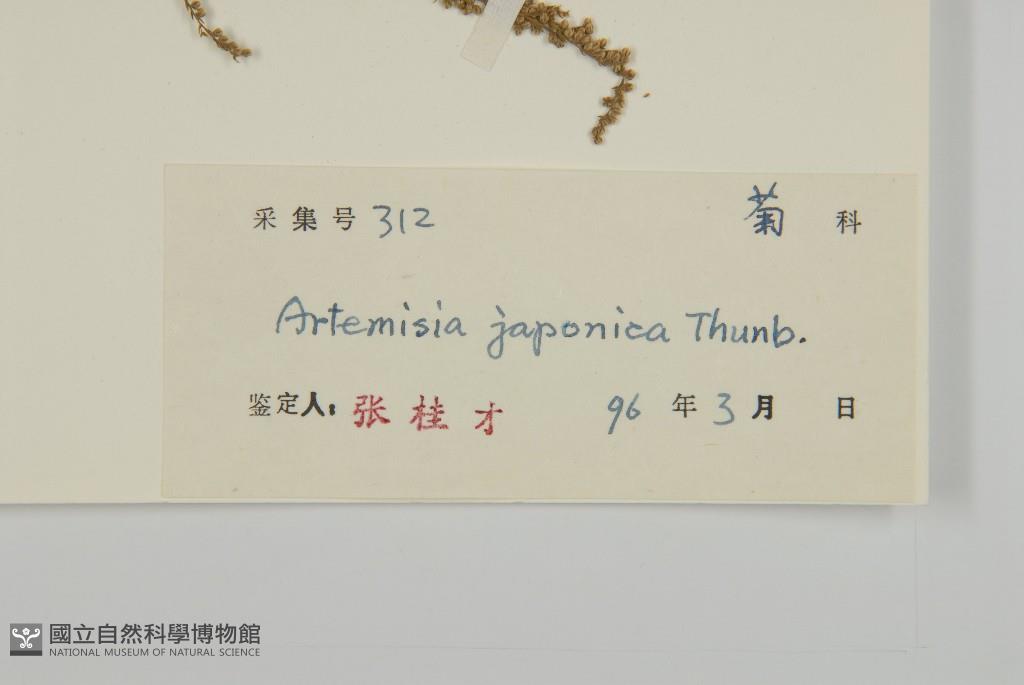 采集号 312 菊 科
Artemisia japonica Thunb.
鉴定人: 张桂才 96 年 3 月 日
國立自然科學博物館
NATIONAL MUSEUM OF NATURAL SCIENCE